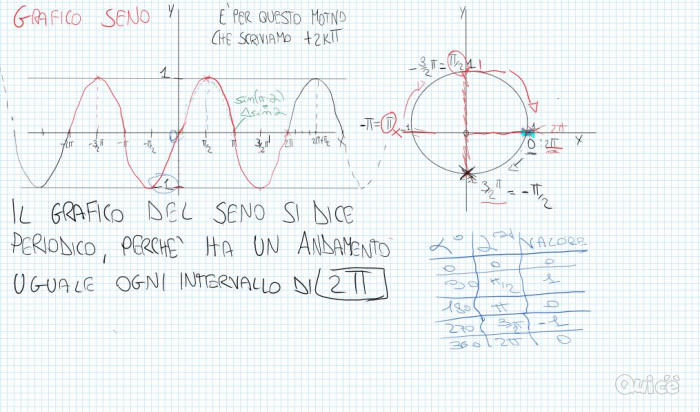 GRAFICO SENO
Y
E' PER QUESTO MOTIVO
CHE SCRIVIAMO +2Kπ
1
-2π -3/2π -π -π/2 0 π/2 π 3/2π 2π 2π+π/2 X
-1
Y
-3/2π = π/2 1
-π = π -1
1 2π X
0 2π
3/2π = -π/2
IL GRAFICO DEL SENO SI DICE
PERIODICO, PERCHE' HA UN ANDAMENTO
UGUALE OGNI INTERVALLO DI 2π
α° α rad VALORE
0 0 0
90 π/2 1
180 π 0
270 3/2π -1
360 2π 0
Quicë